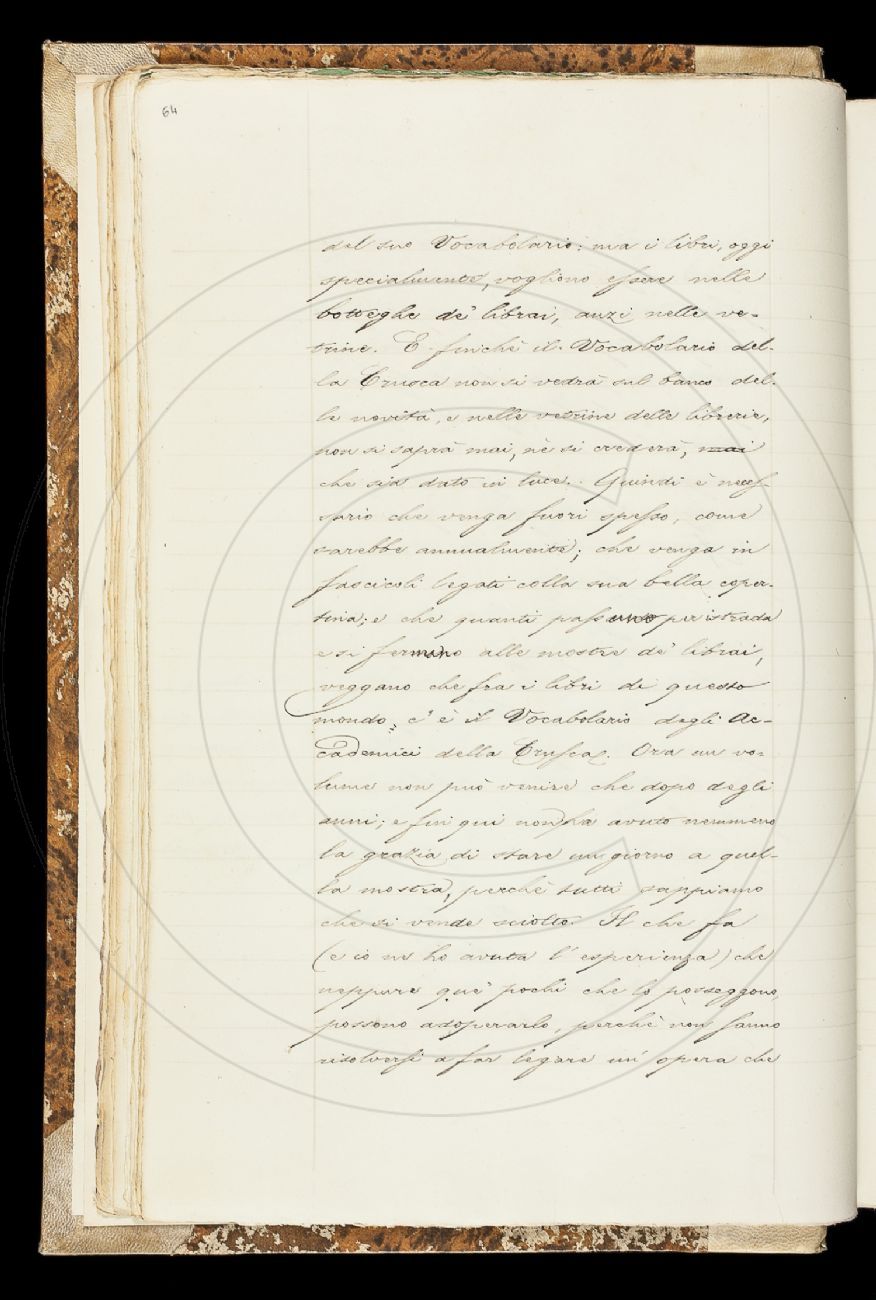 64
del suo Vocabolario: ma i libri, oggi
specialmente, vogliono essere nelle
botteghe de' librai, anzi nelle ve-
trine. E finchè il Vocabolario del-
la Crusca non si vedrà sul banco del-
le novità, e nelle vetrine delle librerie,
non si saprà mai, nè si crederà, mai
che sia dato in luce. Quindi è neces-
sario che venga fuori spesso, come
sarebbe annualmente; che venga in
fascicoli legati colla sua bella coper-
tina; e che quanti passano per istrada
e si fermano alle mostre de' librai,
veggano che fra i libri di questo
mondo, c'è il Vocabolario degli Ac-
cademici della Crusca. Ora un vo-
lume non può venire che dopo degli
anni; e fin qui non ha avuto nemmeno
la grazia di stare un giorno a quel-
la mostra, perchè tutti sappiamo
che si vende sciolto. Il che fa
(e io ne ho avuta l'esperienza) che
neppure que' pochi che lo posseggono,
possono adoperarlo, perchè non sanno
risolversi a far legare un' opera che